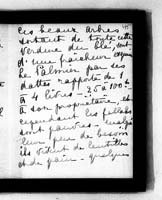 les beaux arbres
sortent de toute cette
verdure du blé, sont
d'une fraîcheur exquise
Le Palmier par ses
dattes rapporte de 1
à 4 livres - 25 à 100 f.
à son propriétaire et
cependant les fellahs
sont pauvres - malgré
leur peu de besoin
ils vivent de lentilles
et de pain - quelques